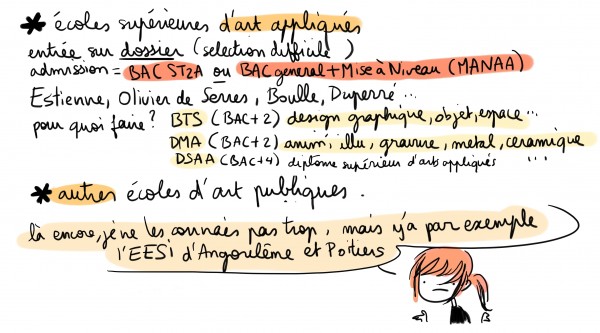 * écoles supérieures d'art appliqués
entrée sur dossier (selection difficile)
admission = BAC ST2A ou BAC general + Mise à Niveau (MANAA)
Estienne, Olivier de Serres, Boulle, Duperré...
pour quoi faire? BTS (BAC+2) design graphique, objet, espace...
DMA (BAC+2) anim, illu, gravure, metal, ceramique
DSAA (BAC+4) diplome supérieur d'arts appliqués ...
* autres écoles d'art publiques.
là encore, je ne les connais pas trop, mais y'a par exemple
l'EESI d'Angoulême et Poitiers